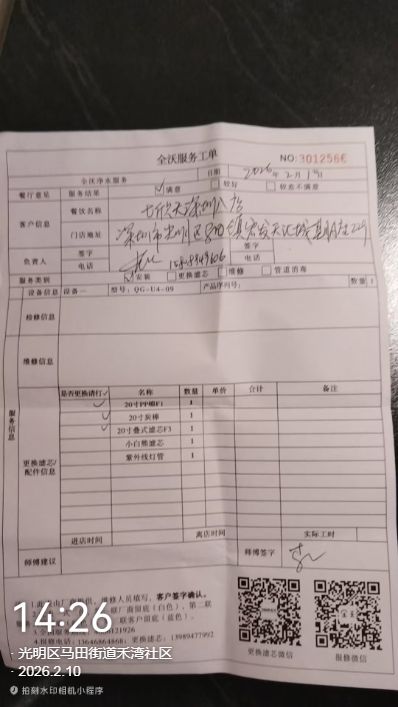 全沃服务工单
NO:301256
全沃净水服务 日期 2026年2月1日
餐厅意见 服务结果 满意 较好 较差不满意
客户信息 餐饮名称
门店地址 深圳市光明区
负责人 签字 签字
电话 电话
服务类别 安装 更换滤芯 维修 管道消毒
设备信息 设备一 型号: QG-U4-09 产品序列号: 数量 1
检修信息
维修信息
服务信息
是否更换请打✓ 名称 数量 单价 合计 备注
✓ 20寸PP棉F1 1
✓ 20寸炭棒 1
✓ 20寸叠式滤芯F3 1
小白熊滤芯 1
紫外线灯管 1
更换滤芯/配件信息
进店时间 离店时间 实际工时
师傅建议 师傅签字
维修人员填写,客户签字确认。
联厂商留底(白色)、第二联
联客户留底(蓝色)。
4.报修电话:13646864868;更换滤芯:13989477992
更换滤芯微信 报修微信
14:26
光明区马田街道禾湾社区
2026.2.10
拍刻水印相机小程序